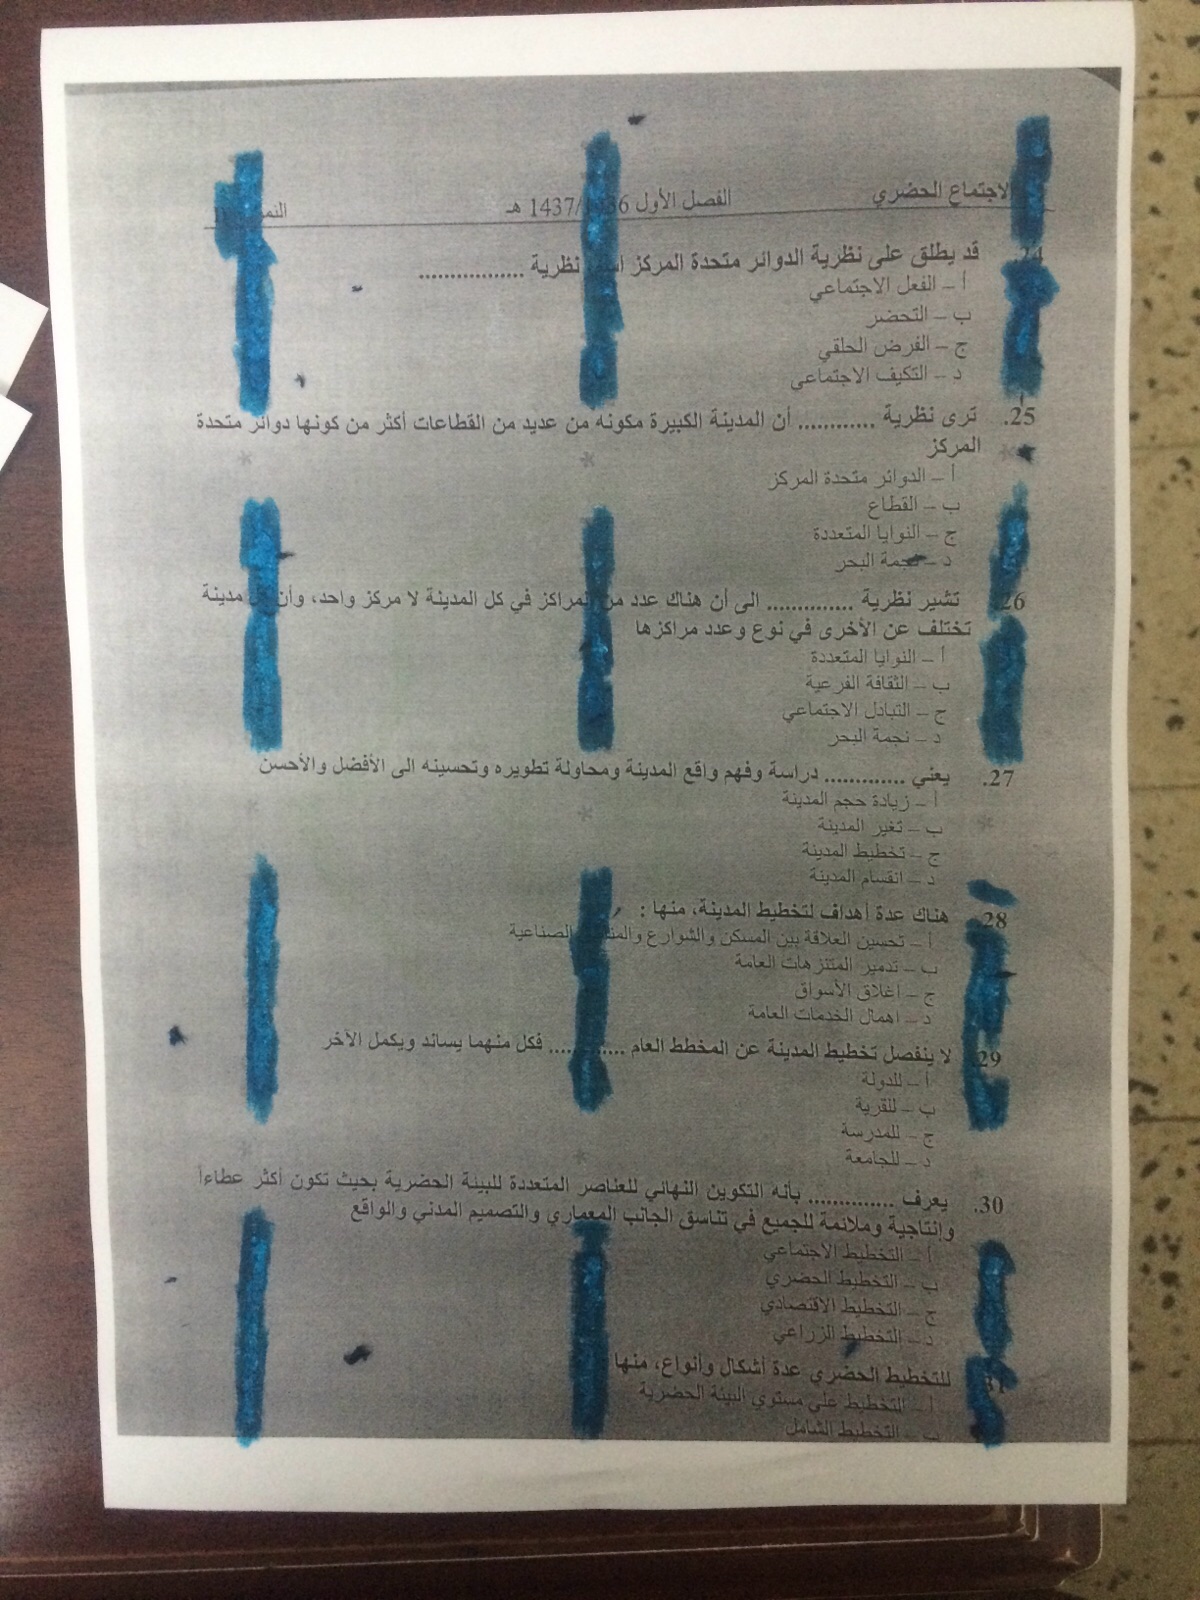 الاجتماع الحضري الفصل الأول 1437/1436 هـ
24. قد يطلق على نظرية الدوائر متحدة المركز اسم نظرية .................
أ – الفعل الاجتماعي
ب – التحضر
ج – الفرض الحلقي
د – التكيف الاجتماعي
25. ترى نظرية ............ أن المدينة الكبيرة مكونه من عديد من القطاعات أكثر من كونها دوائر متحدة
المركز
أ – الدوائر متحدة المركز
ب – القطاع
ج – النوايا المتعددة
د – نجمة البحر
26. تشير نظرية .............. الى أن هناك عدد من المراكز في كل المدينة لا مركز واحد، وأن كل مدينة
تختلف عن الأخرى في نوع وعدد مراكزها
أ – النوايا المتعددة
ب – الثقافة الفرعية
ج – التبادل الاجتماعي
د – نجمة البحر
27. يعني ............. دراسة وفهم واقع المدينة ومحاولة تطويره وتحسينه الى الأفضل والأحسن
أ – زيادة حجم المدينة
ب – تغير المدينة
ج – تخطيط المدينة
د – انقسام المدينة
28. هناك عدة أهداف لتخطيط المدينة، منها :
أ – تحسين العلاقة بين المسكن والشوارع الصناعية
ب – تدمير المتنزهات العامة
ج – اغلاق الأسواق
د – اهمال الخدمات العامة
29. لا ينفصل تخطيط المدينة عن المخطط العام ............ فكل منهما يساند ويكمل الآخر
أ – للدولة
ب – للقرية
ج – للمدرسة
د – للجامعة
30. يعرف .............. بأنه التكوين النهائي للعناصر المتعددة للبيئة الحضرية بحيث تكون أكثر عطاءاً
وإنتاجية وملائمة للجميع في تناسق الجانب المعماري والتصميم المدني والواقع
أ – التخطيط الاجتماعي
ب – التخطيط الحضري
ج – التخطيط الاقتصادي
د – التخطيط الزراعي
31. للتخطيط الحضري عدة أشكال وأنواع، منها
أ – التخطيط على مستوي البيئة الحضرية
ب – التخطيط الشامل